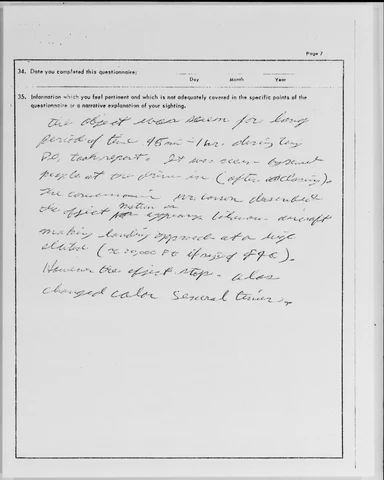 Page 7
34. Date you completed this questionnaire:
Day Month Year
35. Information which you feel pertinent and which is not adequately covered in the specific points of the
questionnaire or a narrative explanation of your sighting.
The object was seen for long
period of time 45 min - 1 hr. during day
P.D. took report. It was seen by
people at the drive in (after closing).
The described
the object motion as appearing like an aircraft
making landing approach at a high
altitude (≈ 20,000 ft if size of
However the object stop. also
changed color several times.